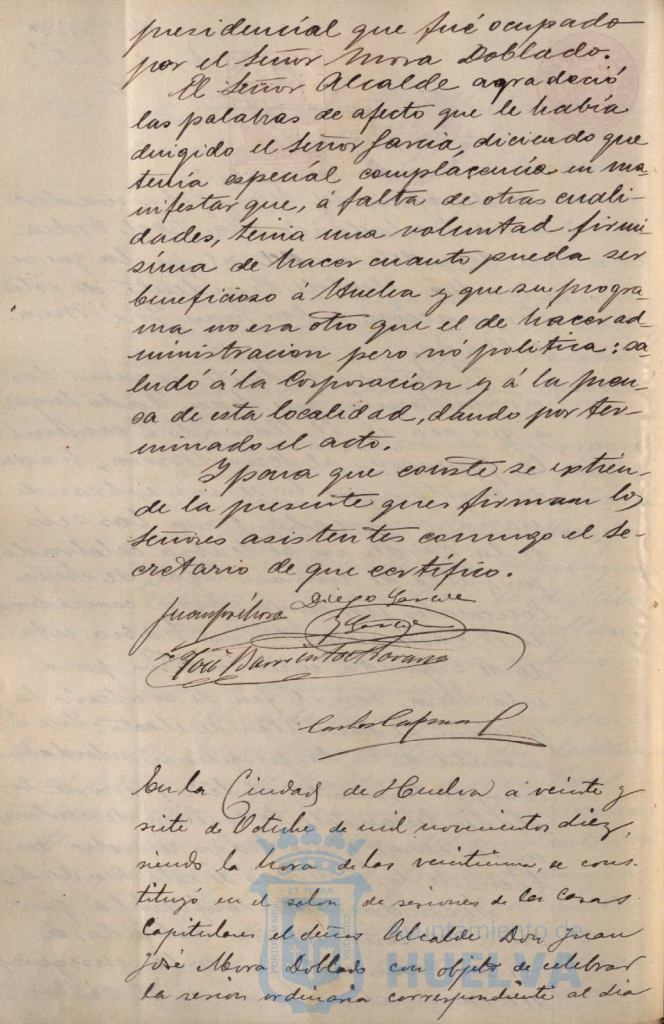 presidencial que fué ocupado
por el Señor Mora Doblado.
El Señor Alcalde agradeció
las palabras de afecto que le había
dirigido el Señor García, diciendo que
tenía especial complacencia en ma-
nifestar que, á falta de otras cuali-
dades, tenía una voluntad firmi-
sima de hacer cuanto pueda ser
beneficioso á Huelva y que su progra-
ma no era otro que el de hacer ad-
ministracion pero nó politica: sa-
ludó á la Corporacion y á la pren-
sa de esta localidad, dando por ter-
minado el acto.
Y para que conste se extien-
de la presente que firman los
Señores asistentes conmigo el Se-
cretario de que certifico.
Diego García
José Barrientos
En la Ciudad de Huelva á veinte y
siete de Octubre de mil novecientos diez,
siendo la hora de las veintiuna, se cons-
tituyó en el salon de sesiones de las Casas
Capitulares el Señor Alcalde Don Juan
José Mora Doblado con objeto de celebrar
la sesion ordinaria correspondiente al dia
Ayuntamiento de
HUELVA